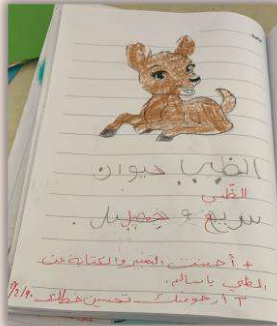 الظبي حيوان
الظّبي
سريع و جميل.
+ أحسنت التعبير والكتابة عن
الظبي يا سالم.
+ أرجو منك تحسين خطك.